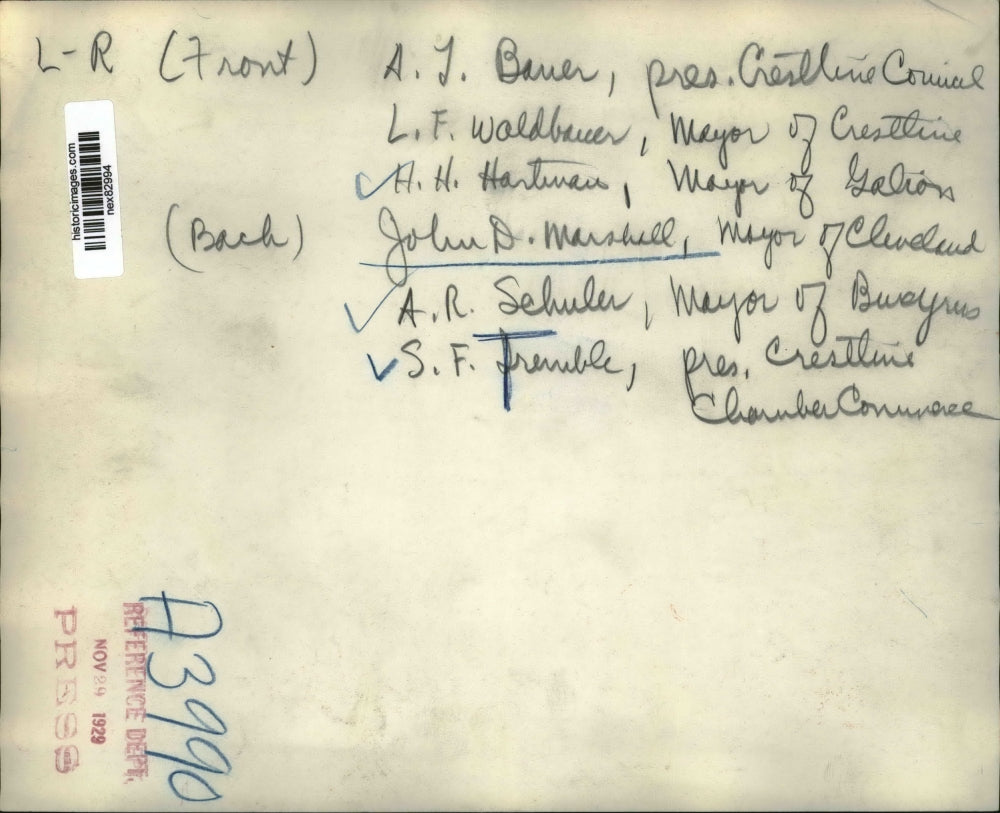 L-R (Front) A. J. Bauer, pres. Crestline Council
L. F. Waldbauer, Mayor of Crestline
A. H. Hartman, Mayor of Galion
(Back) John D. Marshall, Mayor of Cleveland
A. R. Schuler, Mayor of Bucyrus
S. F. Tremble, pres. Crestline
Chamber Commerce
historicimages.com
nex82994
A3990
REFERENCE DEPT.
NOV 29 1929
PRESS